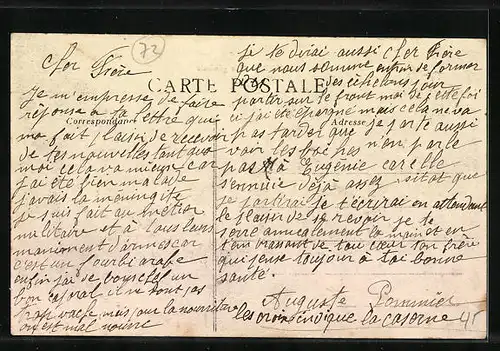 72
Cher Frère
CARTE POSTALE
Correspondance
Adresse
Je m'empresse de faire
réponse a ta lettre que
ma fait plaisir de recevoir
de tes nouvelles tant que
moi cela va mieux car
j'ai été bien malade
j'avais la meningite
je suis fait au metier
militaire et à tous leurs
maniement d'armes car
c'est un fourbi arabe
enfin j'ai de bouscler un
bon caporal il ne sont pas
trop vache mais pour la nourriture
on est mal nourri
Je te dirai aussi Cher Frère
que nous somme en train de former
des échelons pour
partir sur le front moi de cette foi
ci j'ai été épargné mais cela ne va
pas tarder que je parte aussi
voir les boches n'en parle
pas à Eugénie car elle
s'ennuie déjà assez sitot que
je partirai je t'écrirai en attendant
le plaisir de se revoir je te
serre amicalement la main et en
t'embrassant de tou cœur ton frère
qui pense toujour à toi bonne
santé.
Auguste Pommier
les croix indique la caserne
45